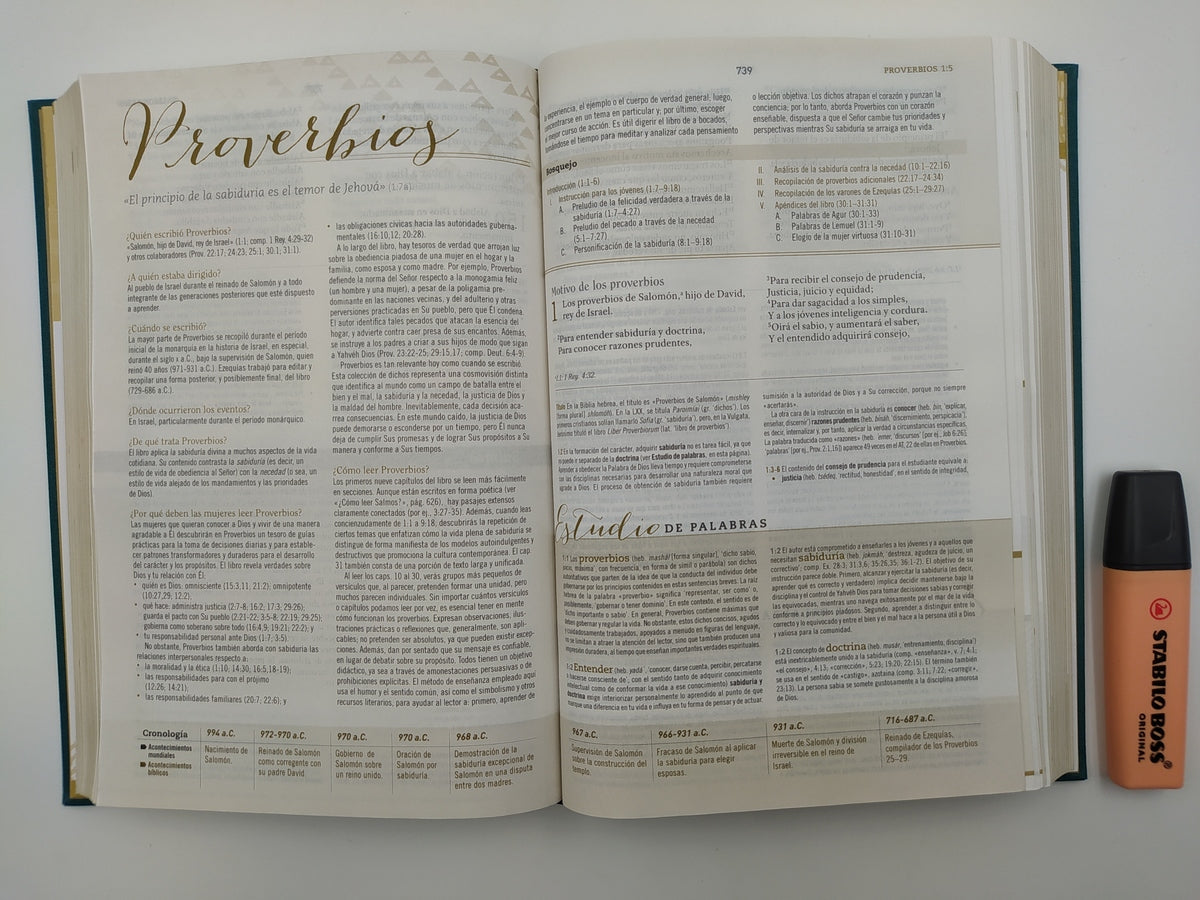 Proverbios
«El principio de la sabiduría es el temor de Jehová» (1:7a)
¿Quién escribió Proverbios?
«Salomón, hijo de David, rey de Israel» (1:1; comp. 1 Rey. 4:29-32)
y otros colaboradores (Prov. 22:17; 24:23; 25:1; 30:1; 31:1).
¿A quién estaba dirigido?
Al pueblo de Israel durante el reinado de Salomón y a todo
integrante de las generaciones posteriores que esté dispuesto
a aprender.
¿Cuándo se escribió?
La mayor parte de Proverbios se recopiló durante el período
inicial de la monarquía en la historia de Israel, en especial,
durante el siglo X a.C., bajo la supervisión de Salomón, quien
reinó 40 años (971-931 a.C.). Ezequías trabajó para editar y
recopilar una forma posterior, y posiblemente final, del libro
(729-686 a.C.).
¿Dónde ocurrieron los eventos?
En Israel, particularmente durante el período monárquico.
¿De qué trata Proverbios?
El libro aplica la sabiduría divina a muchos aspectos de la vida
cotidiana. Su contenido contrasta la sabiduría (es decir, un
estilo de vida de obediencia al Señor) con la necedad (o sea, un
estilo de vida alejado de los mandamientos y las prioridades
de Dios).
¿Por qué deben las mujeres leer Proverbios?
Las mujeres que quieran conocer a Dios y vivir de una manera
agradable a Él descubrirán en Proverbios un tesoro de guías
prácticas para la toma de decisiones diarias y para estable-
cer patrones transformadores y duraderos para el desarrollo
del carácter y los propósitos. El libro revela verdades sobre
Dios y tu relación con Él.
• quién es Dios: omnisciente (15:3,11; 21:2); omnipotente
(10:27,29; 12:2),
• qué hace: administra justicia (2:7-8; 16:2; 17:3; 29:26);
guarda el pacto con Su pueblo (2:21-22; 3:5-8; 22:19; 29:25);
gobierna como soberano sobre todo (16:4,9; 19:21; 22:2); y
• tu responsabilidad personal ante Dios (1:7; 3:5).
No obstante, Proverbios también aborda con sabiduría las
relaciones interpersonales respecto a:
• la moralidad y la ética (1:10; 14:30; 16:5,18-19);
• las responsabilidades para con el prójimo
(12:26; 14:21).
• las responsabilidades familiares (20:7; 22:6); y
• las obligaciones cívicas hacia las autoridades guberna-
mentales (16:10,12; 20:28).
A lo largo del libro, hay tesoros de verdad que arrojan luz
sobre la obediencia piadosa de una mujer en el hogar y la
familia, como esposa y como madre. Por ejemplo, Proverbios
defiende la norma del Señor respecto a la monogamia feliz
(un hombre y una mujer), a pesar de la poligamia pre-
dominante en las naciones vecinas, y del adulterio y otras
perversiones practicadas en Su pueblo, pero que Él condena.
El autor identifica tales pecados que atacan la esencia del
hogar, y advierte contra caer presa de sus encantos. Además,
se instruye a los padres a criar a sus hijos de modo que sigan
a Yahvéh Dios (Prov. 23:22-25; 29:15,17; comp. Deut. 6:4-9).
Proverbios es tan relevante hoy como cuando se escribió.
Esta colección de dichos representa una cosmovisión distinta
que identifica al mundo como un campo de batalla entre el
bien y el mal, la sabiduría y la necedad, la justicia de Dios y
la maldad del hombre. Inevitablemente, cada decisión aca-
rrea consecuencias. En este mundo caído, la justicia de Dios
puede demorarse o esconderse por un tiempo, pero Él nunca
deja de cumplir Sus promesas y de lograr Sus propósitos a Su
manera y conforme a Sus tiempos.
¿Cómo leer Proverbios?
Los primeros nueve capítulos del libro se leen más fácilmente
en secciones. Aunque están escritos en forma poética (ver
«¿Cómo leer Salmos?», pág. 626), hay pasajes extensos
claramente conectados (por ej., 3:27-35). Además, cuando leas
concienzudamente de 1:1 a 9:18, descubrirás la repetición de
ciertos temas que enfatizan cómo la vida plena de sabiduría se
distingue de forma manifiesta de los modelos autoindulgentes y
destructivos que promociona la cultura contemporánea. El cap.
31 también consta de una porción de texto larga y unificada.
Al leer los caps. 10 al 30, verás grupos más pequeños de
versículos que, al parecer, pretenden formar una unidad, pero
muchos parecen individuales. Sin importar cuántos versículos
o capítulos podamos leer por vez, es esencial tener en mente
cómo funcionan los proverbios. Expresan observaciones, ilus-
traciones prácticas o reflexiones que, generalmente, son apli-
cables; no pretenden ser absolutos, ya que pueden existir excep-
ciones. Además, dan por sentado que su mensaje es confiable,
en lugar de debatir sobre su propósito. Todos tienen un objetivo
didáctico, ya sea a través de amonestaciones persuasivas o de
prohibiciones explícitas. El método de enseñanza empleado aquí
usa el humor y el sentido común, así como el simbolismo y otros
recursos literarios, para ayudar al lector a: primero, aprender de
Cronología
Acontecimientos
mundiales
Acontecimientos
bíblicos
994 a.C.
Nacimiento de
Salomón.
972-970 a.C.
Reinado de Salomón
como corregente con
su padre David.
970 a.C.
Gobierno de
Salomón sobre
un reino unido.
970 a.C.
Oración de
Salomón por
sabiduría.
968 a.C.
Demostración de la
sabiduría excepcional de
Salomón en una disputa
entre dos madres.
739
PROVERBIOS 1:5
experiencia, el ejemplo o el cuerpo de verdad general; luego,
concentrarse en un tema en particular y; por último, escoger
mejor curso de acción. Es útil digerir el libro de a bocados,
tomándose el tiempo para meditar y analizar cada pensamiento
o lección objetiva. Los dichos atrapan el corazón y punzan la
conciencia; por lo tanto, aborda Proverbios con un corazón
enseñable, dispuesta a que el Señor cambie tus prioridades y
perspectivas mientras Su sabiduría se arraiga en tu vida.
Bosquejo
Introducción (1:1-6)
I. Instrucción para los jóvenes (1:7–9:18)
A. Preludio de la felicidad verdadera a través de la
sabiduría (1:7–4:27)
B. Preludio del pecado a través de la necedad
(5:1–7:27)
C. Personificación de la sabiduría (8:1–9:18)
II. Análisis de la sabiduría contra la necedad (10:1–22:16)
III. Recopilación de proverbios adicionales (22:17–24:34)
IV. Recopilación de los varones de Ezequías (25:1–29:27)
V. Apéndices del libro (30:1–31:31)
A. Palabras de Agur (30:1-33)
B. Palabras de Lemuel (31:1-9)
C. Elogio de la mujer virtuosa (31:10-31)
Motivo de los proverbios
1 Los proverbios de Salomón,ª hijo de David,
rey de Israel.
²Para entender sabiduría y doctrina,
Para conocer razones prudentes,
³Para recibir el consejo de prudencia,
Justicia, juicio y equidad;
⁴Para dar sagacidad a los simples,
Y a los jóvenes inteligencia y cordura.
⁵Oirá el sabio, y aumentará el saber,
Y el entendido adquirirá consejo,
1:1: 1 Rey. 4:32.
Título En la Biblia hebrea, el título es «Proverbios de Salomón» (mishley
[forma plural] shlomóh). En la LXX, se titula Paroimíai (gr. 'dichos'). Los
primeros cristianos solían llamarlo Sofía (gr. 'sabiduría'), pero, en la Vulgata,
Jerónimo tituló el libro Liber Proverbiorum (lat. 'libro de proverbios').
1:2 En la formación del carácter, adquirir sabiduría no es tarea fácil, ya que
puede ir separado de la doctrina (ver Estudio de palabras, en esta página).
Aprender a obedecer la Palabra de Dios lleva tiempo y requiere comprometerse
con las disciplinas necesarias para desarrollar una naturaleza moral que
agrade a Dios. El proceso de obtención de sabiduría también requiere
sumisión a la autoridad de Dios y a Su corrección, porque no siempre
«acertarás».
La otra cara de la instrucción en la sabiduría es conocer (heb. bín, 'explicar,
enseñar, discernir') razones prudentes (heb. bináh, 'discernimiento, perspicacia');
es decir, internalizar y, por tanto, aplicar la verdad a circunstancias específicas.
La palabra traducida como «razones» (heb. 'emer, 'discursos' [por ej., Job 6:26];
'palabras' [por ej., Prov. 2:1,16]) aparece 49 veces en el AT, 22 de ellas en Proverbios.
1:3-6 El contenido del consejo de prudencia para el estudiante equivale a:
• justicia (heb. tsédeq, 'rectitud, honestidad', en el sentido de integridad,
Estudio DE PALABRAS
1:1 Los proverbios (heb. mashál [forma singular], 'dicho sabio,
juicio, máxima'; con frecuencia, en forma de símil o parábola) son dichos
autoritativos que parten de la idea de que la conducta del individuo debe
gobernarse por los principios contenidos en estas sentencias breves. La raíz
hebrea de la palabra «proverbio» significa 'representar, ser como' o,
posiblemente, 'gobernar o tener dominio'. En este contexto, el sentido es de
'dicho importante o sabio'. En general, Proverbios contiene máximas que
deben gobernar y regular la vida. No obstante, estos dichos concisos, agudos
y cuidadosamente trabajados, apoyados a menudo en figuras del lenguaje,
no se limitan a atraer la atención del lector, sino que también producen una
impresión duradera, al tiempo que enseñan importantes verdades espirituales.
1:2 Entender (heb. yadá', 'conocer, darse cuenta, percibir, percatarse
o hacerse consciente de', con el sentido tanto de adquirir conocimiento
intelectual como de conformar la vida a ese conocimiento) sabiduría y
doctrina exige interiorizar personalmente lo aprendido al punto de que
marque una diferencia en tu vida e influya en tu forma de pensar y de actuar.
1:2 El autor está comprometido a enseñarles a los jóvenes y a aquellos que
necesitan sabiduría (heb. jokmáh, 'destreza, agudeza de juicio, un
correctivo'; comp. Ex. 28:3; 31:3,6; 35:26,35; 36:1-2). El objetivo de su
instrucción parece doble. Primero, alcanzar y ejercitar la sabiduría (es decir,
aprender qué es correcto y verdadero) implica decidir mantenerse bajo la
disciplina y el control de Yahvéh Dios para tomar decisiones sabias y corregir
las equivocadas, mientras uno navega exitosamente por el mar de la vida
conforme a principios piadosos. Segundo, aprender a distinguir entre lo
correcto y lo equivocado y entre el bien y el mal hace a la persona útil a Dios
y valiosa para la comunidad.
1:2 El concepto de doctrina (heb. musar, 'entrenamiento, disciplina')
está inextricablemente unido a la sabiduría (comp. «enseñanza», v. 7; 4:1;
«el consejo», 4:13; «corrección», 5:23; 19:20; 22:15). El término también
se usa en el sentido de «castigo», azotaina (comp. 3:11; 7:22; «corregir»,
23:13). La persona sabia se somete gustosamente a la disciplina amorosa
de Dios.
967 a.C.
Supervisión de Salomón
sobre la construcción del
templo.
966-931 a.C.
Fracaso de Salomón al aplicar
la sabiduría para elegir
esposas.
931 a.C.
Muerte de Salomón y división
irreversible en el reino de
Israel.
716-687 a.C.
Reinado de Ezequías,
compilador de los Proverbios
25–29.
STABILO BOSS®
ORIGINAL